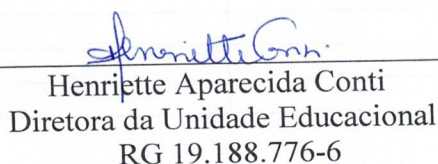 Henriette Conti
Henriette Aparecida Conti
Diretora da Unidade Educacional
RG 19.188.776-6